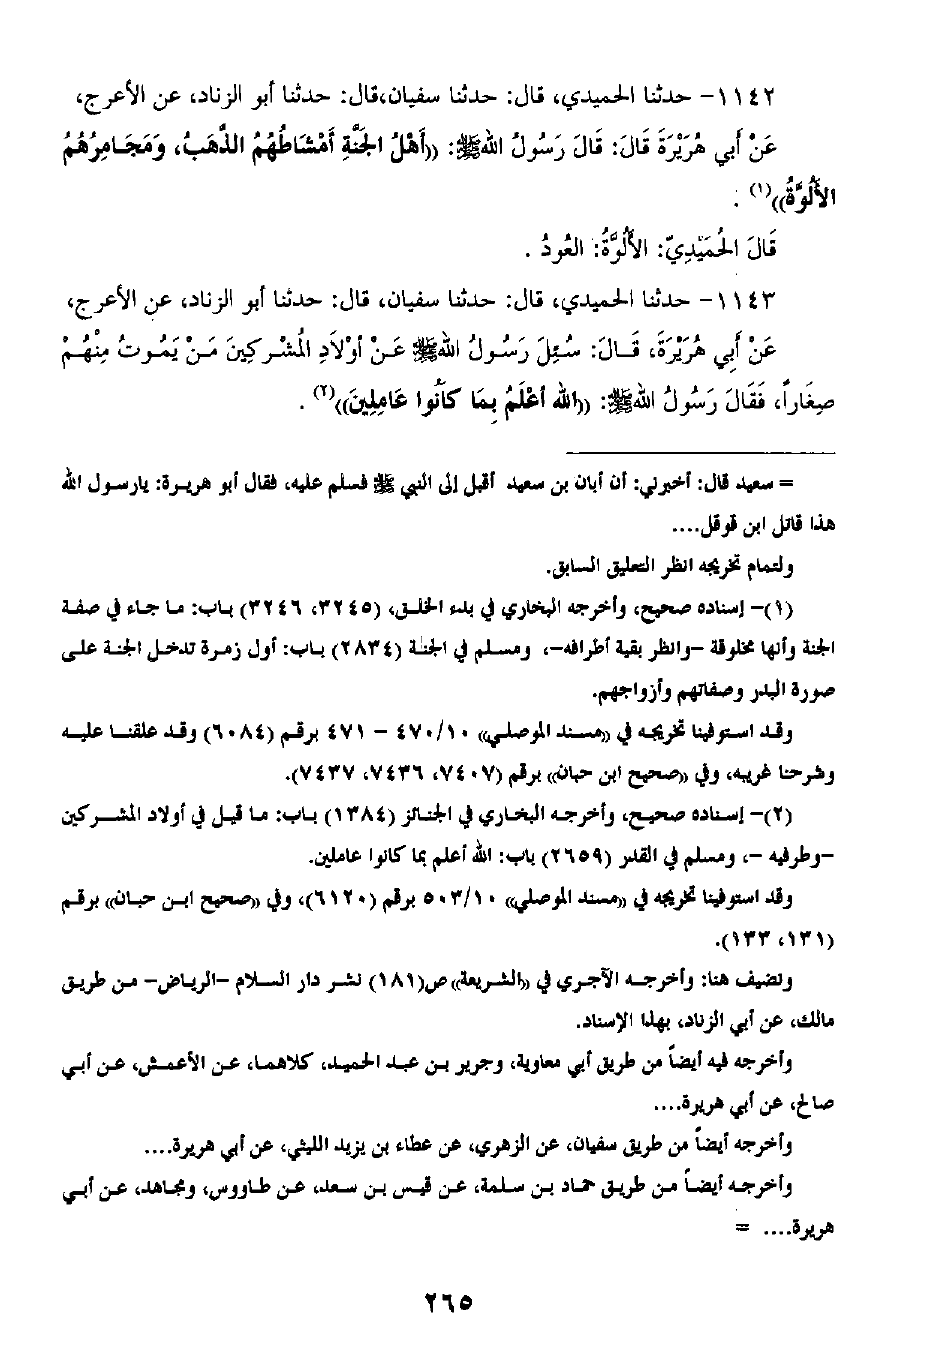 ١١٤٢- حدثنا الحميدي، قال: حدثنا سفيان،قال: حدثنا أبو الزناد، عن الأعرج،
عَنْ أَبِي هُرَيْرَةَ قَالَ: قَالَ رَسُولُ اللهِ ﷺ: ((أَهْلُ الجَنَّةِ أَمْشَاطُهُمُ الذَّهَبُ، وَمَجَامِرُهُمُ
الأَلُوَّةُ))(١) .
قَالَ الحُمَيْدِيّ: الأَلُوَّةُ: العُودُ .
١١٤٣- حدثنا الحميدي، قال: حدثنا سفيان، قال: حدثنا أبو الزناد، عن الأعرج،
عَنْ أَبِي هُرَيْرَةَ، قَـالَ: سُئِلَ رَسُولُ اللهِ ﷺ عَـنْ أَوْلَادِ المُشْـرِكِينَ مَـنْ يَمُوتُ مِنْهُـمْ
صِغَاراً، فَقَالَ رَسُولُ اللهِ ﷺ: ((الله أَعْلَمُ بِمَا كَانُوا عَامِلِينَ))(٢) .
= سعيد قال: أخبرني: أن أبان بن سعيد أقبل إلى النبي ﷺ فسلم عليه، فقال أبو هريـرة: يارسول الله
هذا قاتل ابن قوقل....
ولتمام تخريجه انظر التعليق السابق.
(١)- إسناده صحيح، وأخرجه البخاري في بدء الخلق، (٣٢٤٥، ٣٢٤٦) بـاب: مـا جـاء في صفـة
الجنة وأنها مخلوقة -وانظر بقية أطرافه-، ومسلم في الجنة (٢٨٣٤) بـاب: أول زمـرة تدخـل الجنـة علـى
صورة البدر وصفاتهم وأزواجهم.
وقـد استوفينا تخريجـه في ((مسـند الموصلـي)) ٤٧٠/١٠ - ٤٧١ برقـم (٦٠٨٤) وقـد علقنـا عليـه
وشرحنا غريبه، وفي ((صحيح ابن حبان)) برقم (٧٤٠٧، ٧٤٣٦، ٧٤٣٧).
(٢)- إسـناده صحيـح، وأخرجـه البخـاري في الجنـائز (١٣٨٤) بـاب: مـا قيـل في أولاد المشـركين
-وطرفيه -، ومسلم في القدر (٢٦٥٩) باب: الله أعلم بما كانوا عاملين.
وقد استوفينا تخريجه في ((مسـند الموصلي)) ٥٠٣/١٠ برقم (٦١٢٠)، وفي ((صحيح ابـن حبـان)) برقـم
(١٣١، ١٣٣).
ونضيف هنا: وأخرجـه الآجري في ((الشريعة)) ص(١٨١) نشـر دار السـلام -الريـاض- مـن طريـق
مالك، عن أبي الزناد، بهذا الإسناد.
وأخرجه فيه أيضاً من طريق أبي معاوية، وجرير بـن عبـد الحميـد، كلاهمـا، عـن الأعمـش، عـن أبـي
صالح، عن أبي هريرة....
وأخرجه أيضاً من طريق سفيان، عن الزهري، عن عطاء بن يزيد الليثي، عن أبي هريرة....
وأخرجـه أيضـاً مـن طريـق حمـاد بـن سـلمة، عـن قيـس بـن سـعد، عـن طـاووس، ومجاهد، عـن أبـي
هريرة.... =
٢٦٥